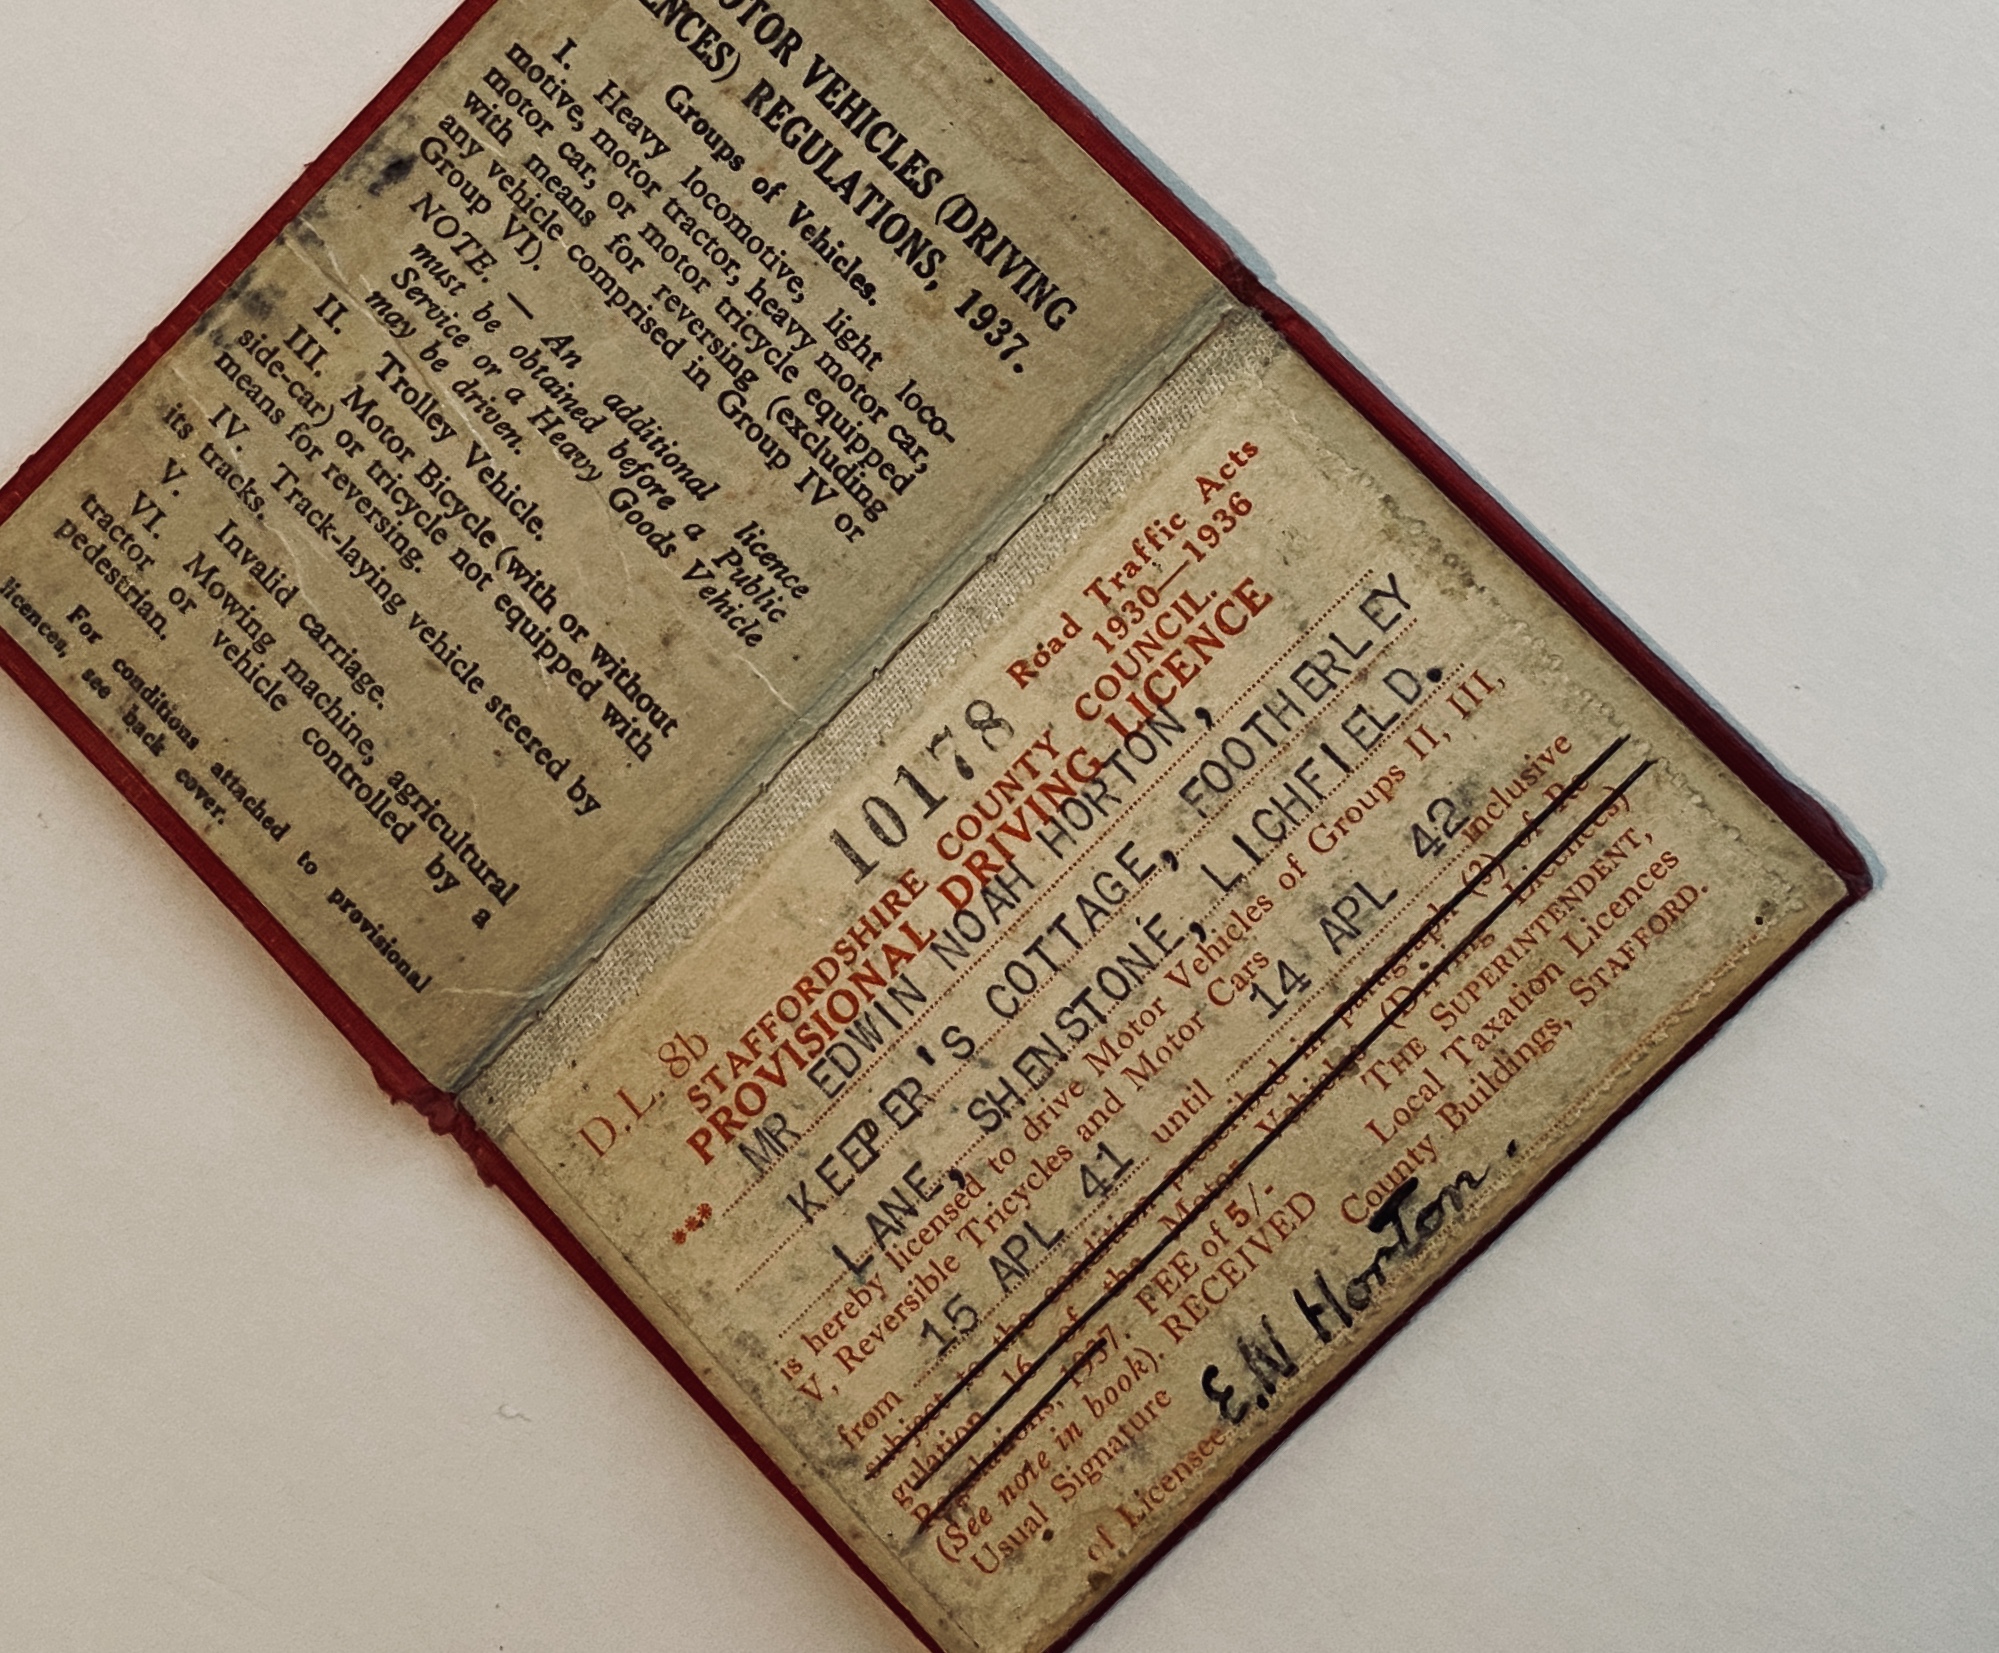 OTOR VEHICLES (DRIVING
ENCES) REGULATIONS, 1937.
Groups of Vehicles.
I. Heavy locomotive, light loco-
motive, motor tractor, heavy motor car,
motor car, or motor tricycle equipped
with means for reversing (excluding
any vehicle comprised in Group IV or
Group VI).
NOTE. — An additional licence
must be obtained before a Public
Service or a Heavy Goods Vehicle
may be driven.
II. Trolley Vehicle.
III. Motor Bicycle (with or without
side-car) or tricycle not equipped with
means for reversing.
IV. Track-laying vehicle steered by
its tracks.
V. Invalid carriage.
VI. Mowing machine, agricultural
tractor or vehicle controlled by a
pedestrian.
For conditions attached to provisional
licences, see back cover.
D.L. 8b 10178 Road Traffic Acts
1930—1936
STAFFORDSHIRE COUNTY COUNCIL.
PROVISIONAL DRIVING LICENCE
*** MR EDWIN NOAH HORTON,
KEEPER'S COTTAGE, FOOTHERLEY
LANE, SHENSTONE, LICHFIELD.
is hereby licensed to drive Motor Vehicles of Groups II, III,
V, Reversible Tricycles and Motor Cars
from 15 APL 41 until 14 APL 42 inclusive
subject to the condition prescribed in paragraph (3) of Re
gulation 16 of the Motor Vehicles (Driving Licences)
Regulations, 1937. FEE of 5/- THE SUPERINTENDENT,
(See note in book). RECEIVED Local Taxation Licences
Usual Signature County Buildings, STAFFORD.
of Licensee E.N Horton.